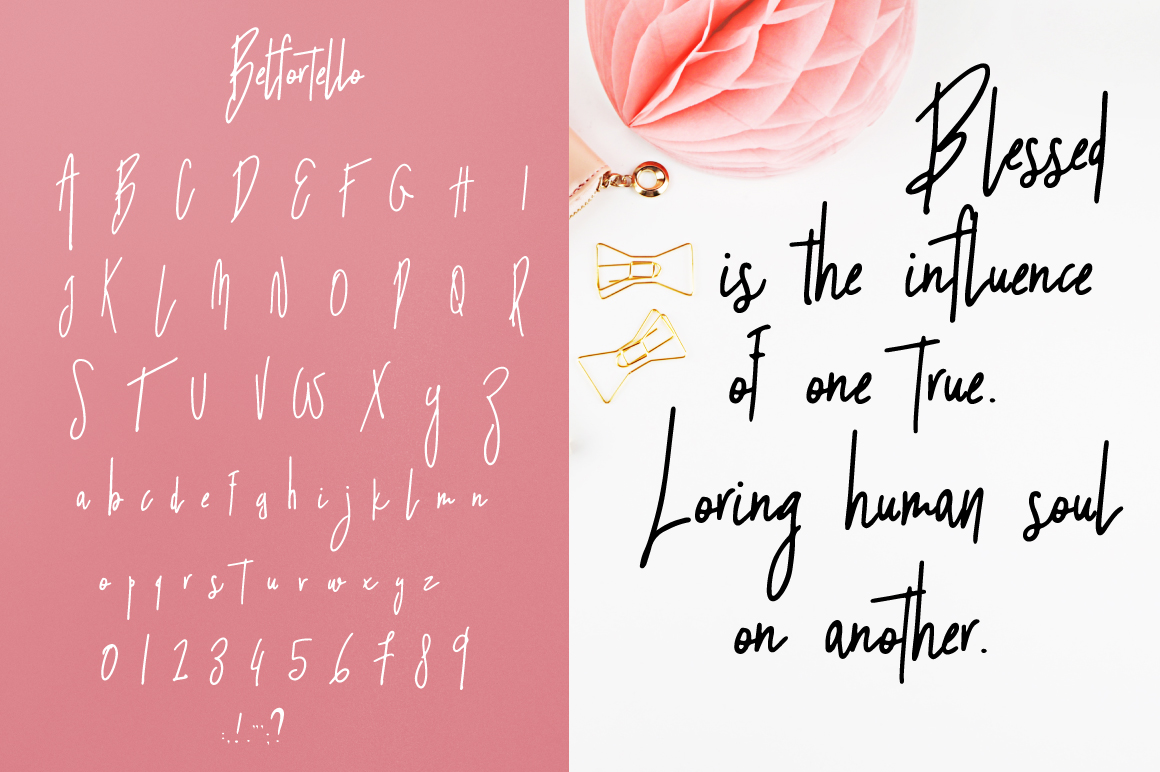 Belfortello
A B C D E F G H I
J K L M N O P Q R
S T U V W X Y Z
a b c d e f g h i j k l m n
o p q r s t u v w x y z
0 1 2 3 4 5 6 7 8 9
Blessed
is the influence
of one true.
Loring human soul
on another.